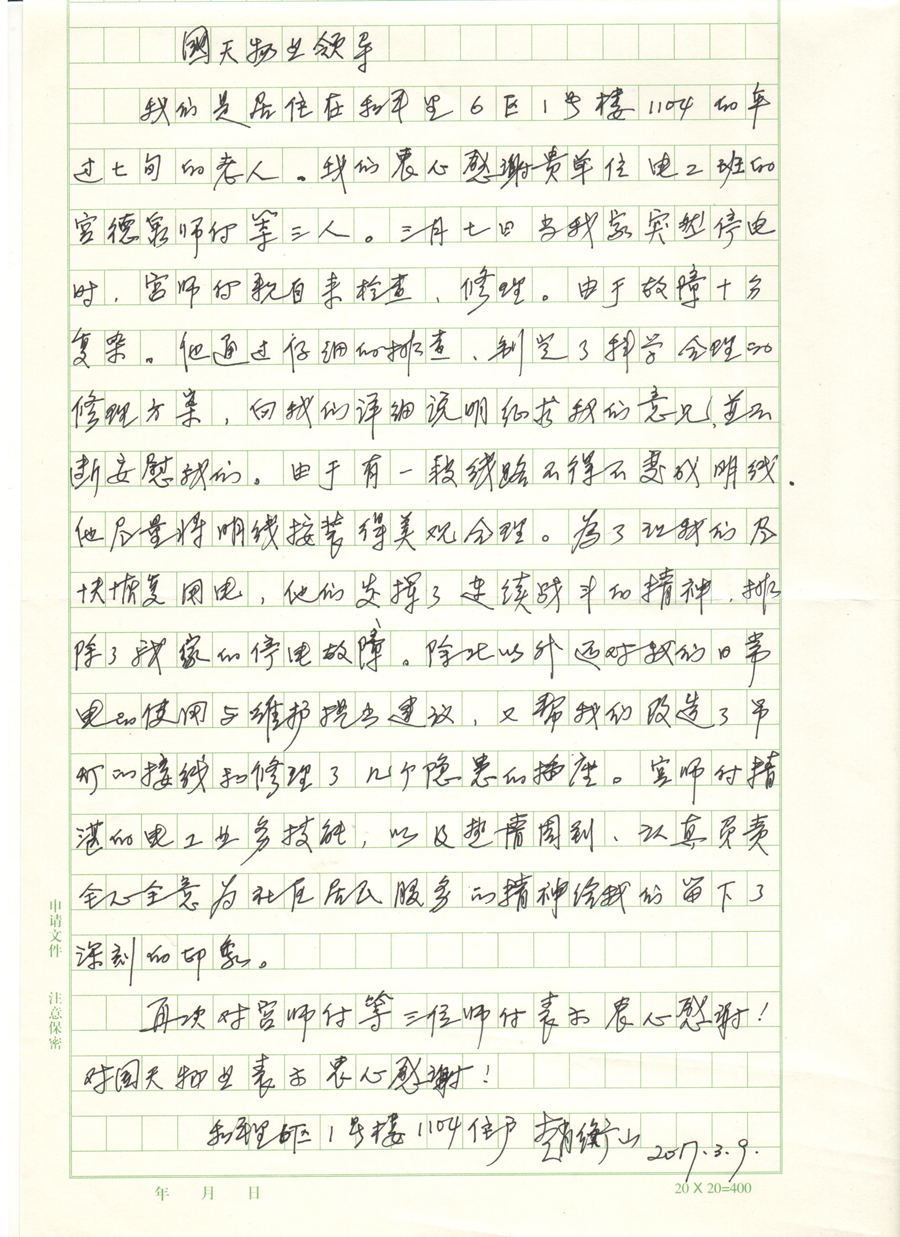 國天物业领导
我们是居住在和平里6区1号楼1104的年
过七旬的老人。我们衷心感谢贵单位电工班的
宫德泉师付等三人。三月七日当我家突然停电
时，宫师付亲自来检查、修理。由于故障十分
复杂。他通过仔细的排查、制定了科学合理的
修理方案，向我们详细说明征求我们意见，並不
断安慰我们。由于有一段线路不得不变成明线.
他尽量将明线按装得美观合理。为了让我们尽
快恢复用电，他们发挥了连续战斗的精神，排
除了我家的停电故障。除此以外还对我们日常
电的使用与维护提出建议，又帮我们改造了吊
灯的接线和修理了几个隐患的插座。宫师付精
湛的电工业务技能，以及热情周到、认真负责
全心全意为社区居民服务的精神给我们留下了
深刻的印象。
再次对宫师付等三位师付表示衷心感谢！
对国天物业表示衷心感谢！
和平里6区1号楼1104住户 赵衡山 2017.3.9.
申请文件 注意保密
年 月 日
20×20=400